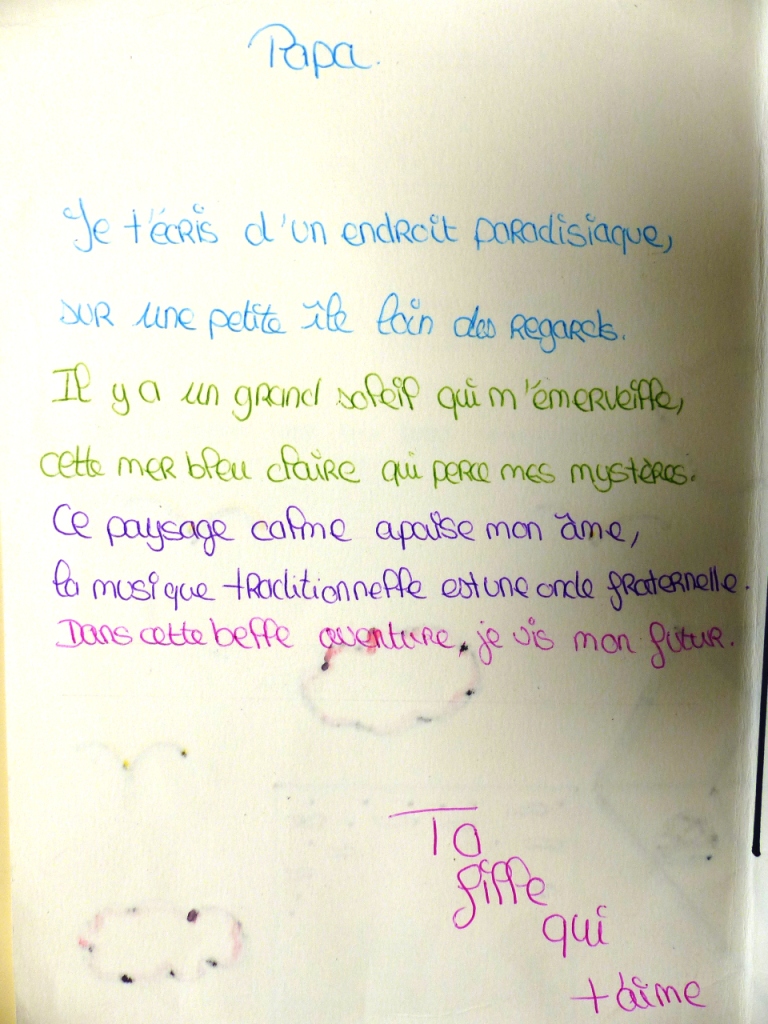 Papa.
Je t'écris d'un endroit paradisiaque,
sur une petite île loin des regards.
Il y a un grand soleil qui m'émerveille,
cette mer bleu claire qui perce mes mystères.
Ce paysage calme apaise mon âme,
la musique traditionnelle est une onde fraternelle.
Dans cette belle aventure, je vis mon futur.
Ta
fille
qui
t'aime